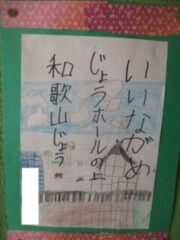 いいながめ
じょうホールの上
和歌山じょう